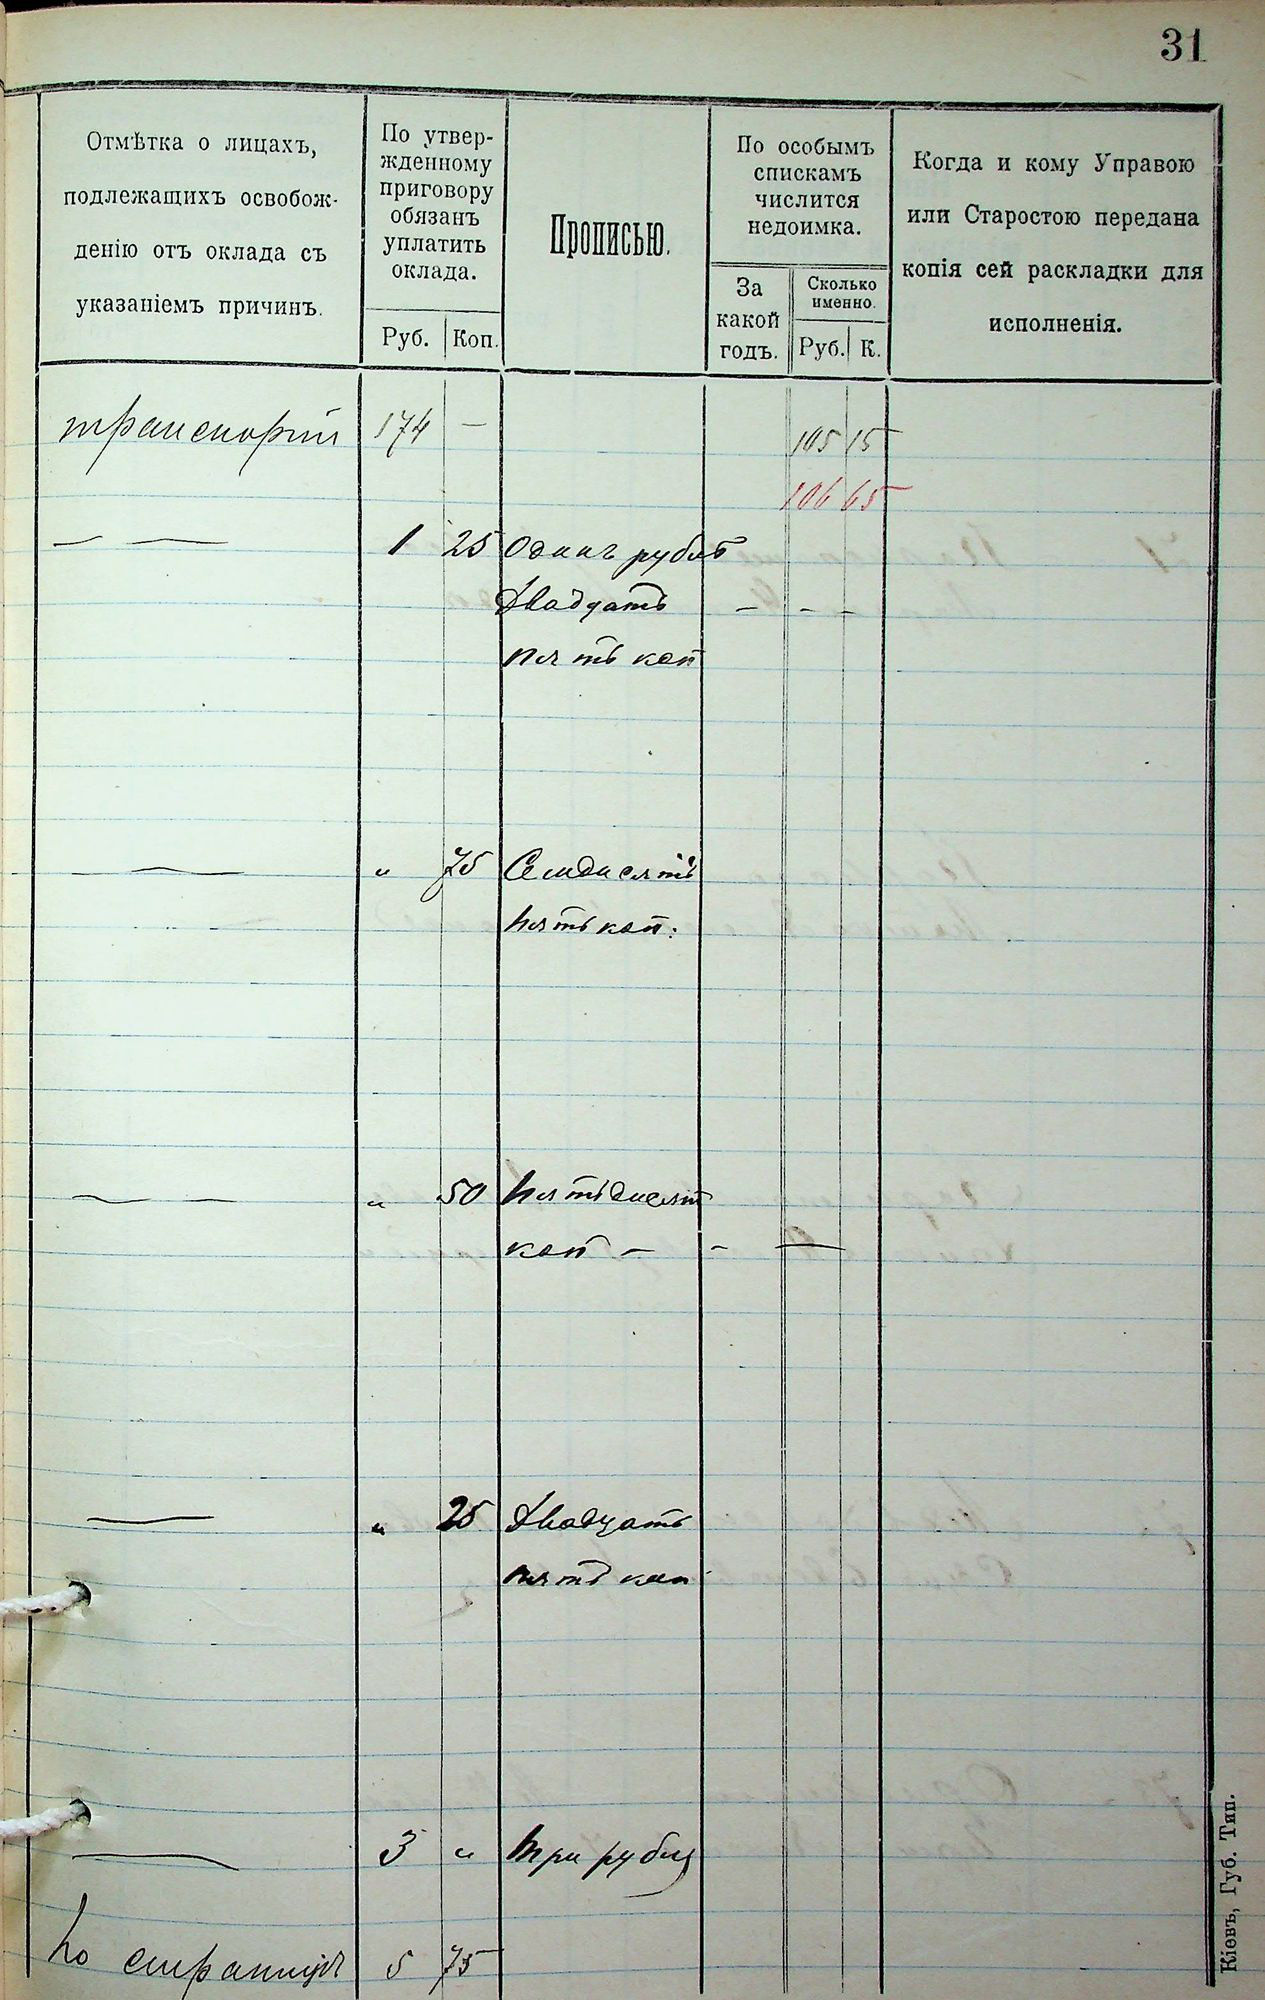 31
Отмѣтка о лицахъ,
подлежащихъ освобож-
денію отъ оклада съ
указаніемъ причинъ.
По утвер-
жденному
приговору
обязанъ
уплатить
оклада.
Руб. Коп.
Прописью.
По особымъ
спискамъ
числится
недоимка.
За
какой
годъ.
Сколько
именно.
Руб. К.
Когда и кому Управою
или Старостою передана
копія сей раскладки для
исполненія.
транспортъ 174 — 105 15
106 65
— — 1 25 Одинъ рубль
Двадцать — — —
пять коп
— " 75 Семдисятъ
пять коп.
— — " 50 Пятьдисятъ
коп — — —
— " 25 Двадцать
пять коп
— 3 " три рубля
По страницѣ 5 75
Кіевъ, Губ. Тип.